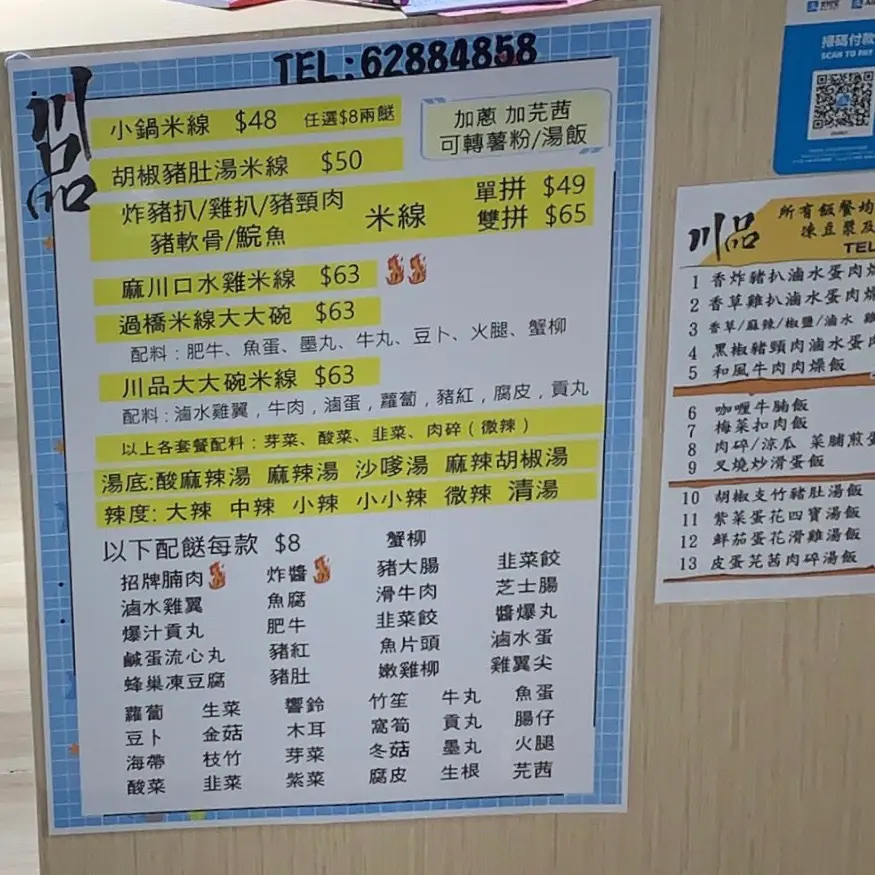 TEL:62884858
川品
小鍋米線 $48 任選$8兩餸
加蔥 加芫茜
可轉薯粉/湯飯
胡椒豬肚湯米線 $50
炸豬扒/雞扒/豬頸肉
豬軟骨/鯇魚
米線
單拼 $49
雙拼 $65
麻川口水雞米線 $63
過橋米線大大碗 $63
配料:肥牛、魚蛋、墨丸、牛丸、豆卜、火腿、蟹柳
川品大大碗米線 $63
配料:滷水雞翼,牛肉,滷蛋,蘿蔔,豬紅,腐皮,貢丸
以上各套餐配料:芽菜、酸菜、韭菜、肉碎(微辣)
湯底:酸麻辣湯 麻辣湯 沙嗲湯 麻辣胡椒湯
辣度:大辣 中辣 小辣 小小辣 微辣 清湯
以下配餸每款 $8 蟹柳
招牌腩肉 炸醬 豬大腸 韭菜餃
滷水雞翼 魚腐 滑牛肉 芝士腸
爆汁貢丸 肥牛 韭菜餃 醬爆丸
鹹蛋流心丸 豬紅 魚片頭 滷水蛋
蜂巢凍豆腐 豬肚 嫩雞柳 雞翼尖
蘿蔔 生菜 響鈴 竹笙 牛丸 魚蛋
豆卜 金菇 木耳 窩筍 貢丸 腸仔
海帶 枝竹 芽菜 冬菇 墨丸 火腿
酸菜 韭菜 紫菜 腐皮 生根 芫茜
掃碼付款
SCAN TO PAY
川品
所有飯餐均
凍豆漿及
TEL
1 香炸豬扒滷水蛋肉燥
2 香草雞扒滷水蛋肉燥
3 香草/麻辣/椒鹽/滷水 雞
4 黑椒豬頸肉滷水蛋肉
5 和風牛肉肉燥飯
6 咖喱牛腩飯
7 梅菜扣肉飯
8 肉碎/涼瓜 菜脯煎蛋
9 叉燒炒滑蛋飯
10 胡椒支竹豬肚湯飯
11 紫菜蛋花四寶湯飯
12 鮮茄蛋花滑雞湯飯
13 皮蛋芫茜肉碎湯飯